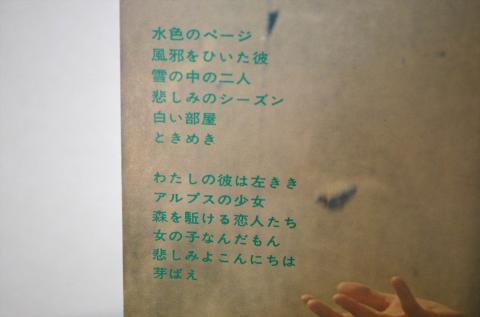 水色のページ
風邪をひいた彼
雪の中の二人
悲しみのシーズン
白い部屋
ときめき
わたしの彼は左きき
アルプスの少女
森を駈ける恋人たち
女の子なんだもん
悲しみよこんにちは
芽ばえ